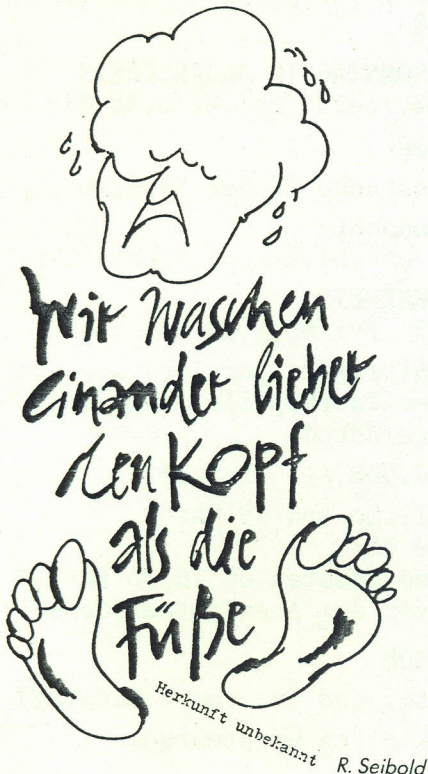 Wir waschen
einander lieber
den Kopf
als die
Füße
Herkunft unbekannt
R. Seibold